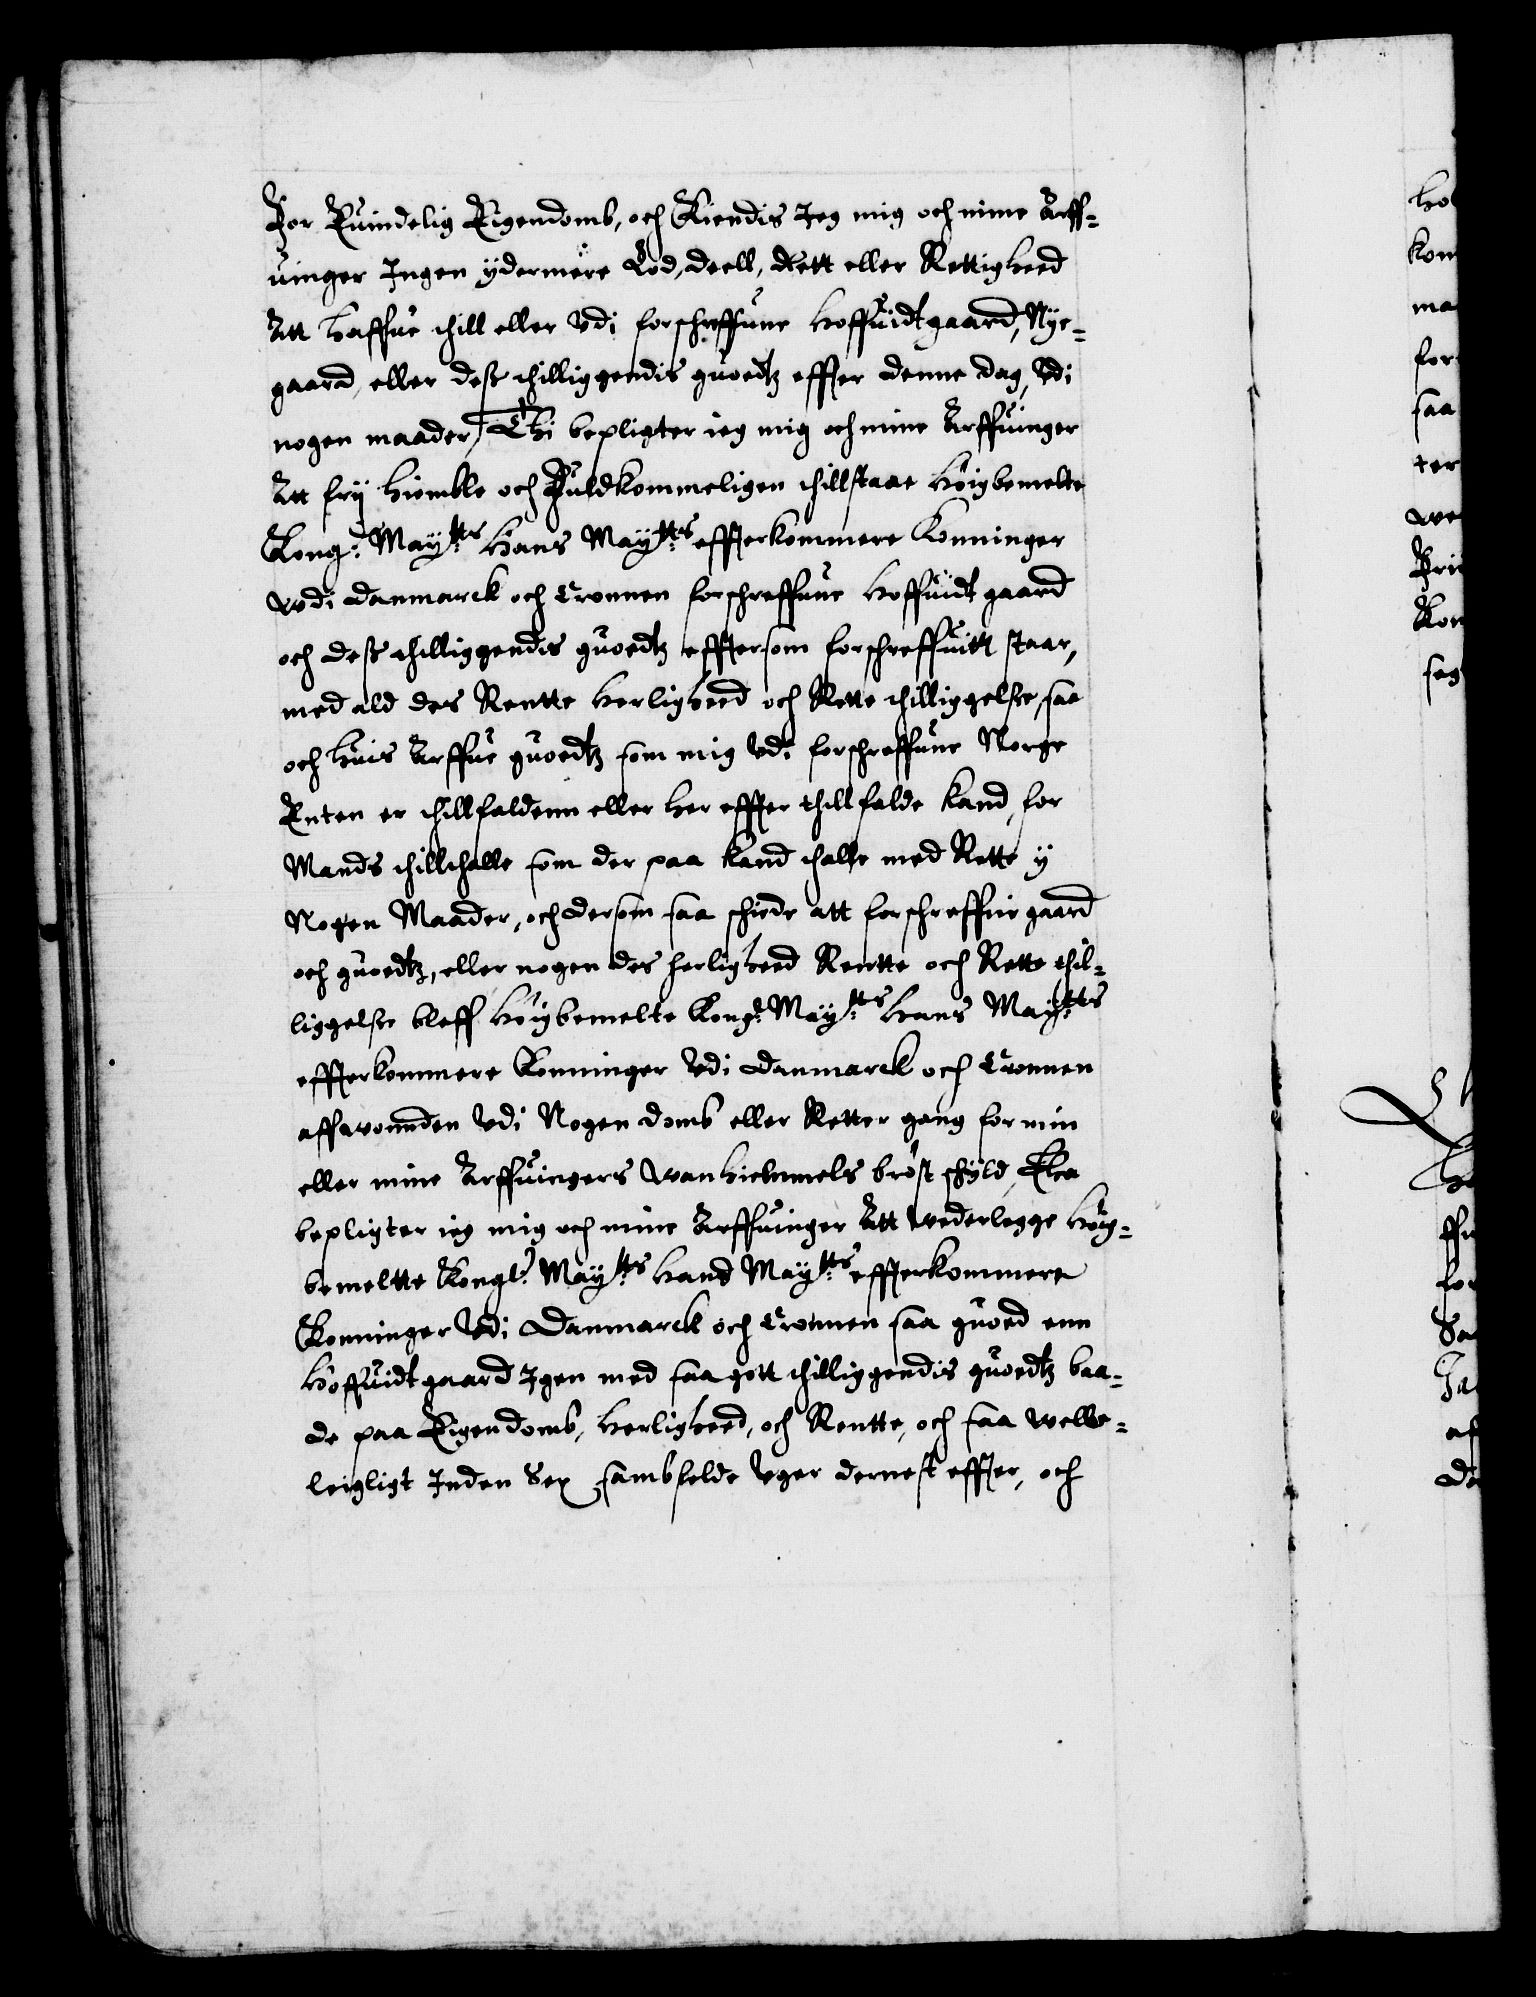 For Euindelig Eigendomb, och Kiendis Jeg mig och mine Arff-
uinger Jngen ydermere Lod, deell, Rett eller Rettigheed
Att haffue thill eller Vdi forschreffune Hoffuidtgaard, Nye-
gaard, eller dess thilliggendis guoedtz effter denne dag, Vdi
nogen maader, Thi bepligter ieg mig och mine Arffuinger
Att frij hiemble och Fuldkommeligen thillstaae Høigbemelte
Kong: Maytts Hans Maytts effterkommere Konninger
vdi Danmarck och Cronnen forschreffune Hoffuidtgaard
och dess thilliggendis guoedtz efftersom forschreffuitt staar,
med ald des Rentte herligheed och Rette thilliggelsse, saa
och huis Arffue guoedtz som mig Vdi forschreffune Norge
Enten er thillfaldenn eller her effter thillfalde kand, for
Mands thillthalle som der paa kand thalle med Rette y
Nogen Maader, och dersom saa schiede att forschreffne gaard
och guoedtz, eller nogen des herligheed Rentte och Rette thil-
liggelsse bleff Høigbemelte Kong: Maytts Hans Maytts
effterkommere Konninger Vdi Danmarck och Cronnen
affwonnden Vdi Nogen domb eller Retter gang for min
eller mine Arffuingers wanhiemmels brøst schyld, Tha
bepligter ieg mig och mine Arffuinger Att wederlegge Høig-
bemeltte Kongl: Maytts Hans Maytts effterkommere
Konninger Vdi Danmarck och Cronnen saa guoed enn
Hoffuidtgaard Jgen med saa gott thilliggendis guoedtz baa-
de paa Eigendomb, Herligheed, och Rentte, och saa welbe-
leigligt Jnden Sex sambfelde Vger dernest effter, och